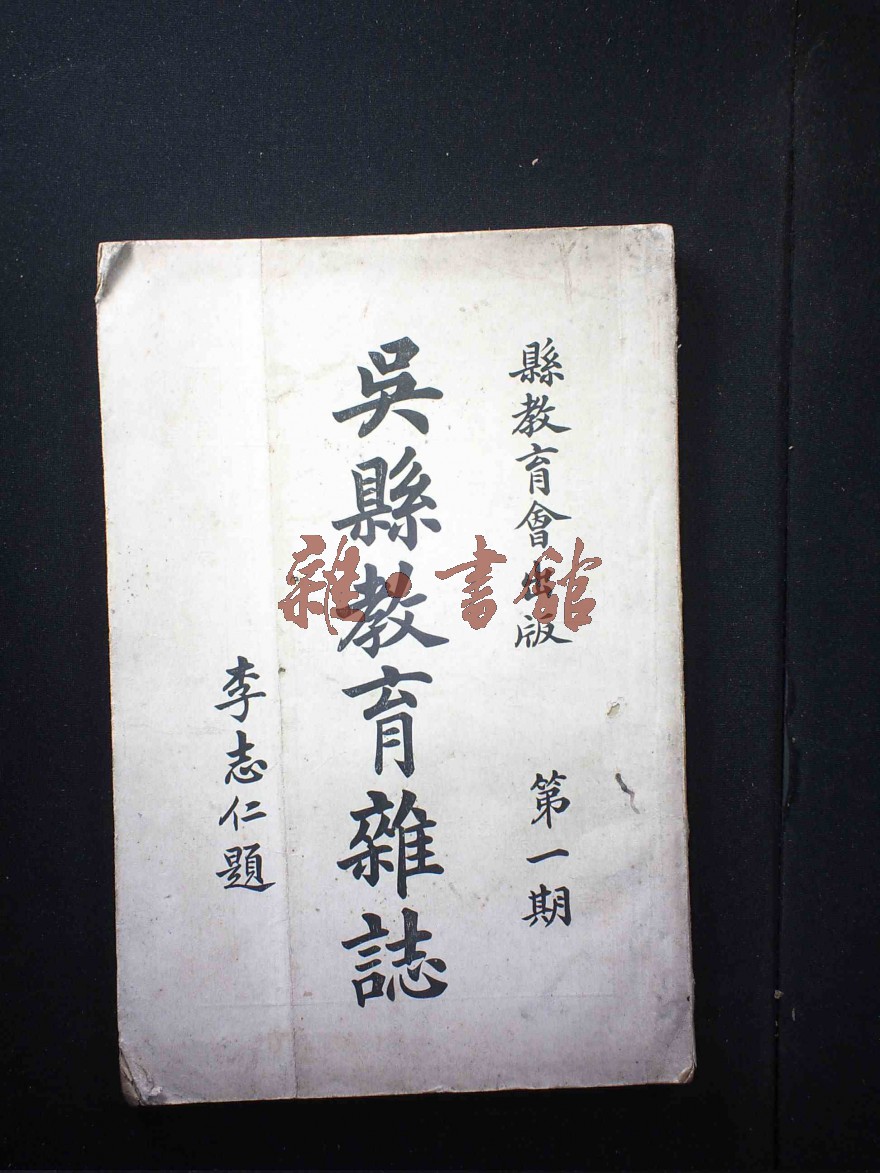 縣教育會出版
第一期
吳縣教育雜誌
李志仁題
雜·書館